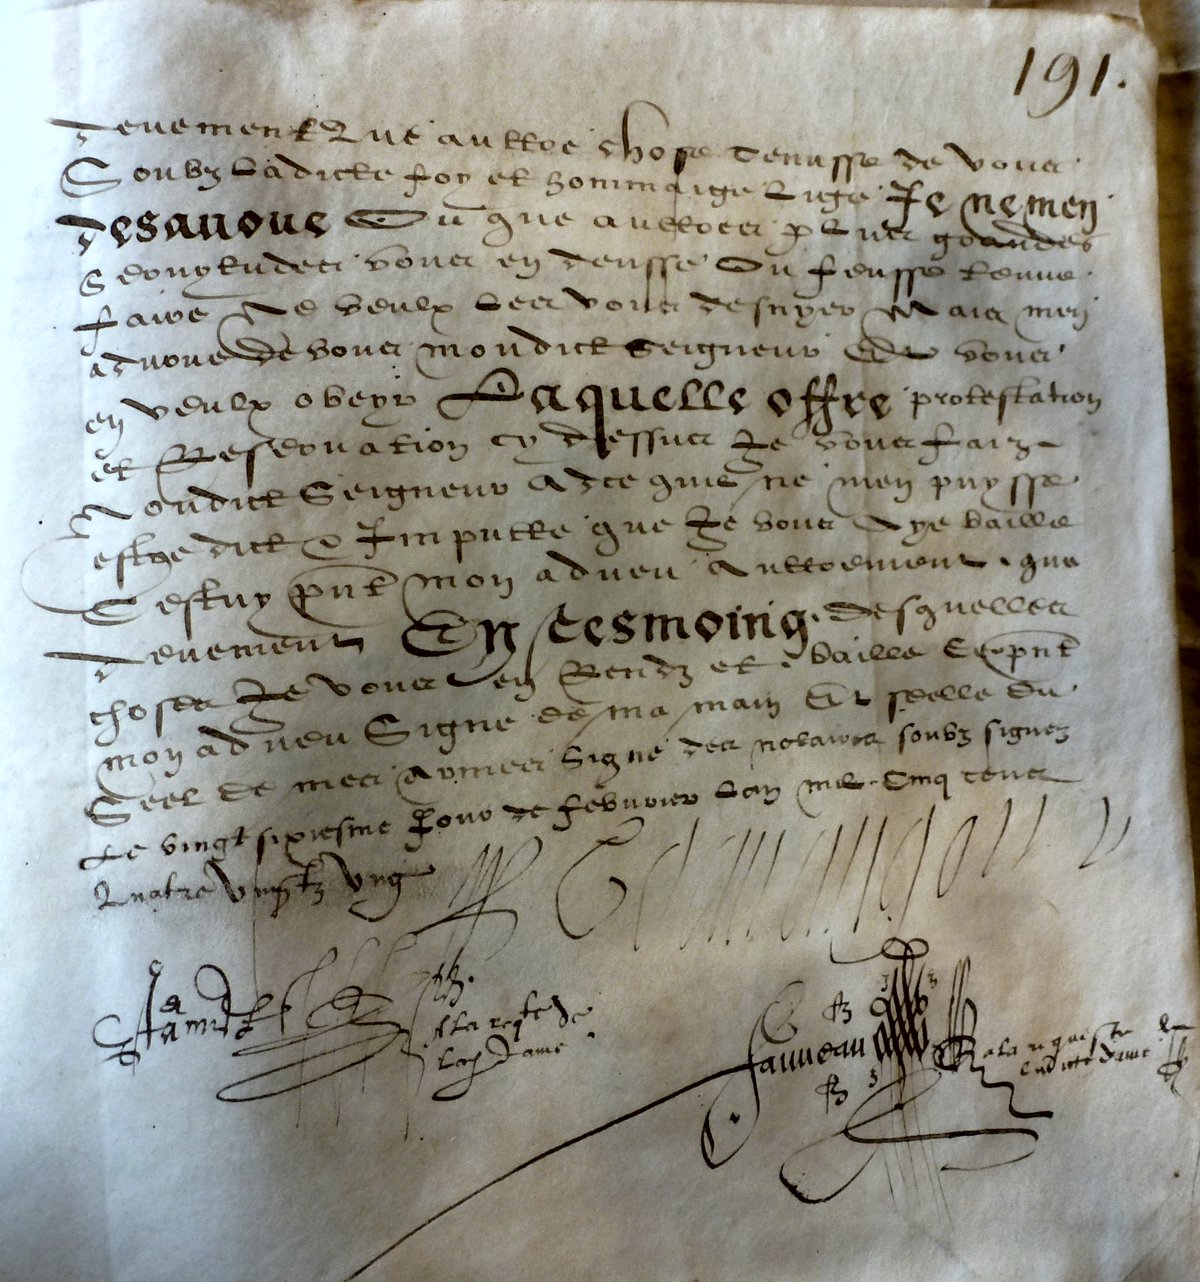 191.
devement Que aultre chose tenusse de vous
Soubz Ladicte foy et hommaige Lige Je ne men
desavoue Ou que aultres plus grandes
servytudes vous en deusse Ou feusse tenue
faire Ne veulx Les vous desnyer Mais men
advoue de vous mondict Seigneur Et vous
en veulx obeyr Laquelle offre protestation
et Reservation cy dessus Je vous faiz
Mondict Seigneur Adce que ne men puysse
estre dict & Imputte que Je vous Aye baille
Cestuy pnt mon adveu Aultrement que
devement En tesmoing desquelles
choses Je vous en Rendz et baille Ce pnt
mon adveu Signe de ma main Et seelle du
Seel de mes armes Signe des notaires soubz signez
Le vingt sixiesme Jour de febvrier Lan mil Cinq cens
Quatre vingtz ung
A la reqte de
Lad dame
A la requeste de
Ladicte dame